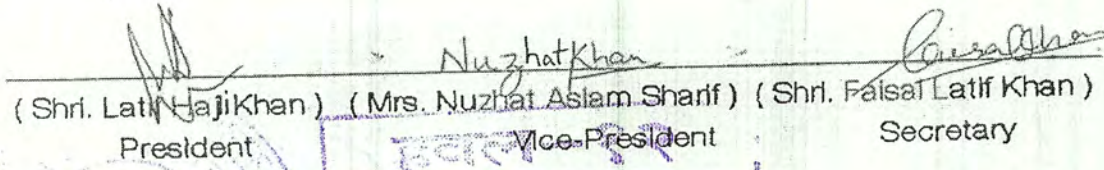 Nuzhat Khan
( Shri. Latif Haji Khan ) ( Mrs. Nuzhat Aslam Sharif ) ( Shri. Faisal Latif Khan )
President Vice-President Secretary